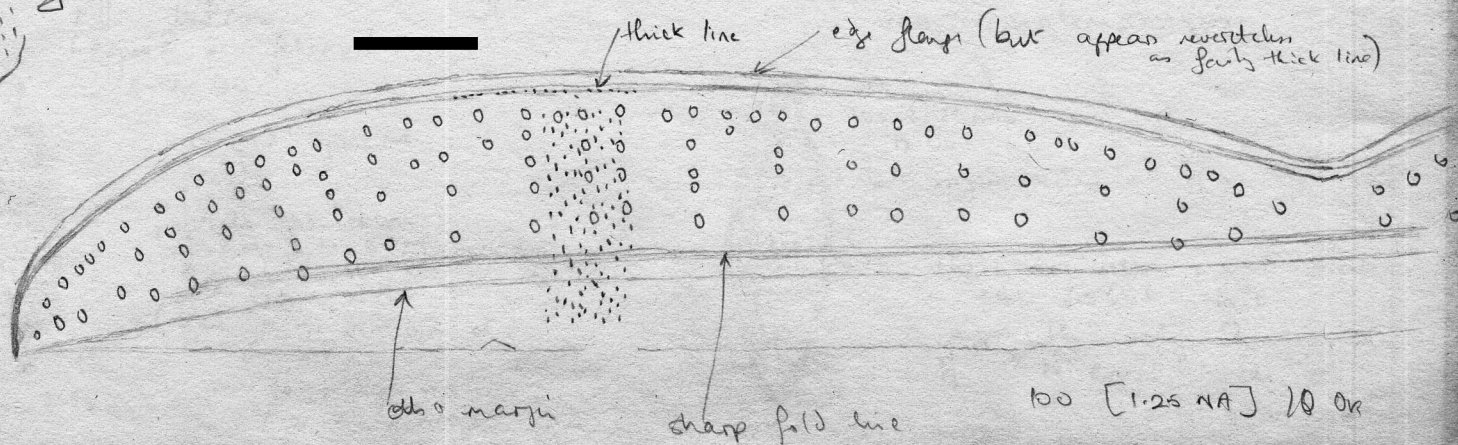 thick line
edge flange (but appears nevertheless
as fairly thick line)
margin
sharp fold line
100 [1.25 NA] 10 Ok